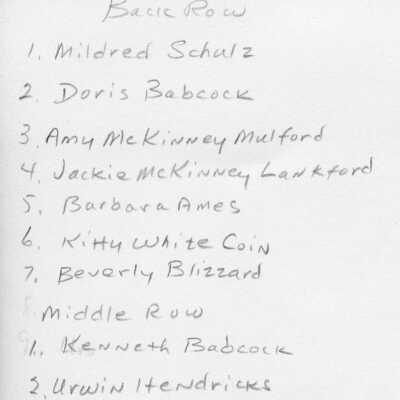 Back Row
1. Mildred Schulz
2. Doris Babcock
3. Amy McKinney Mulford
4. Jackie McKinney Lankford
5. Barbara Ames
6. Kitty White Coin
7. Beverly Blizzard
Middle Row
1. Kenneth Babcock
2. Urwin Hendricks